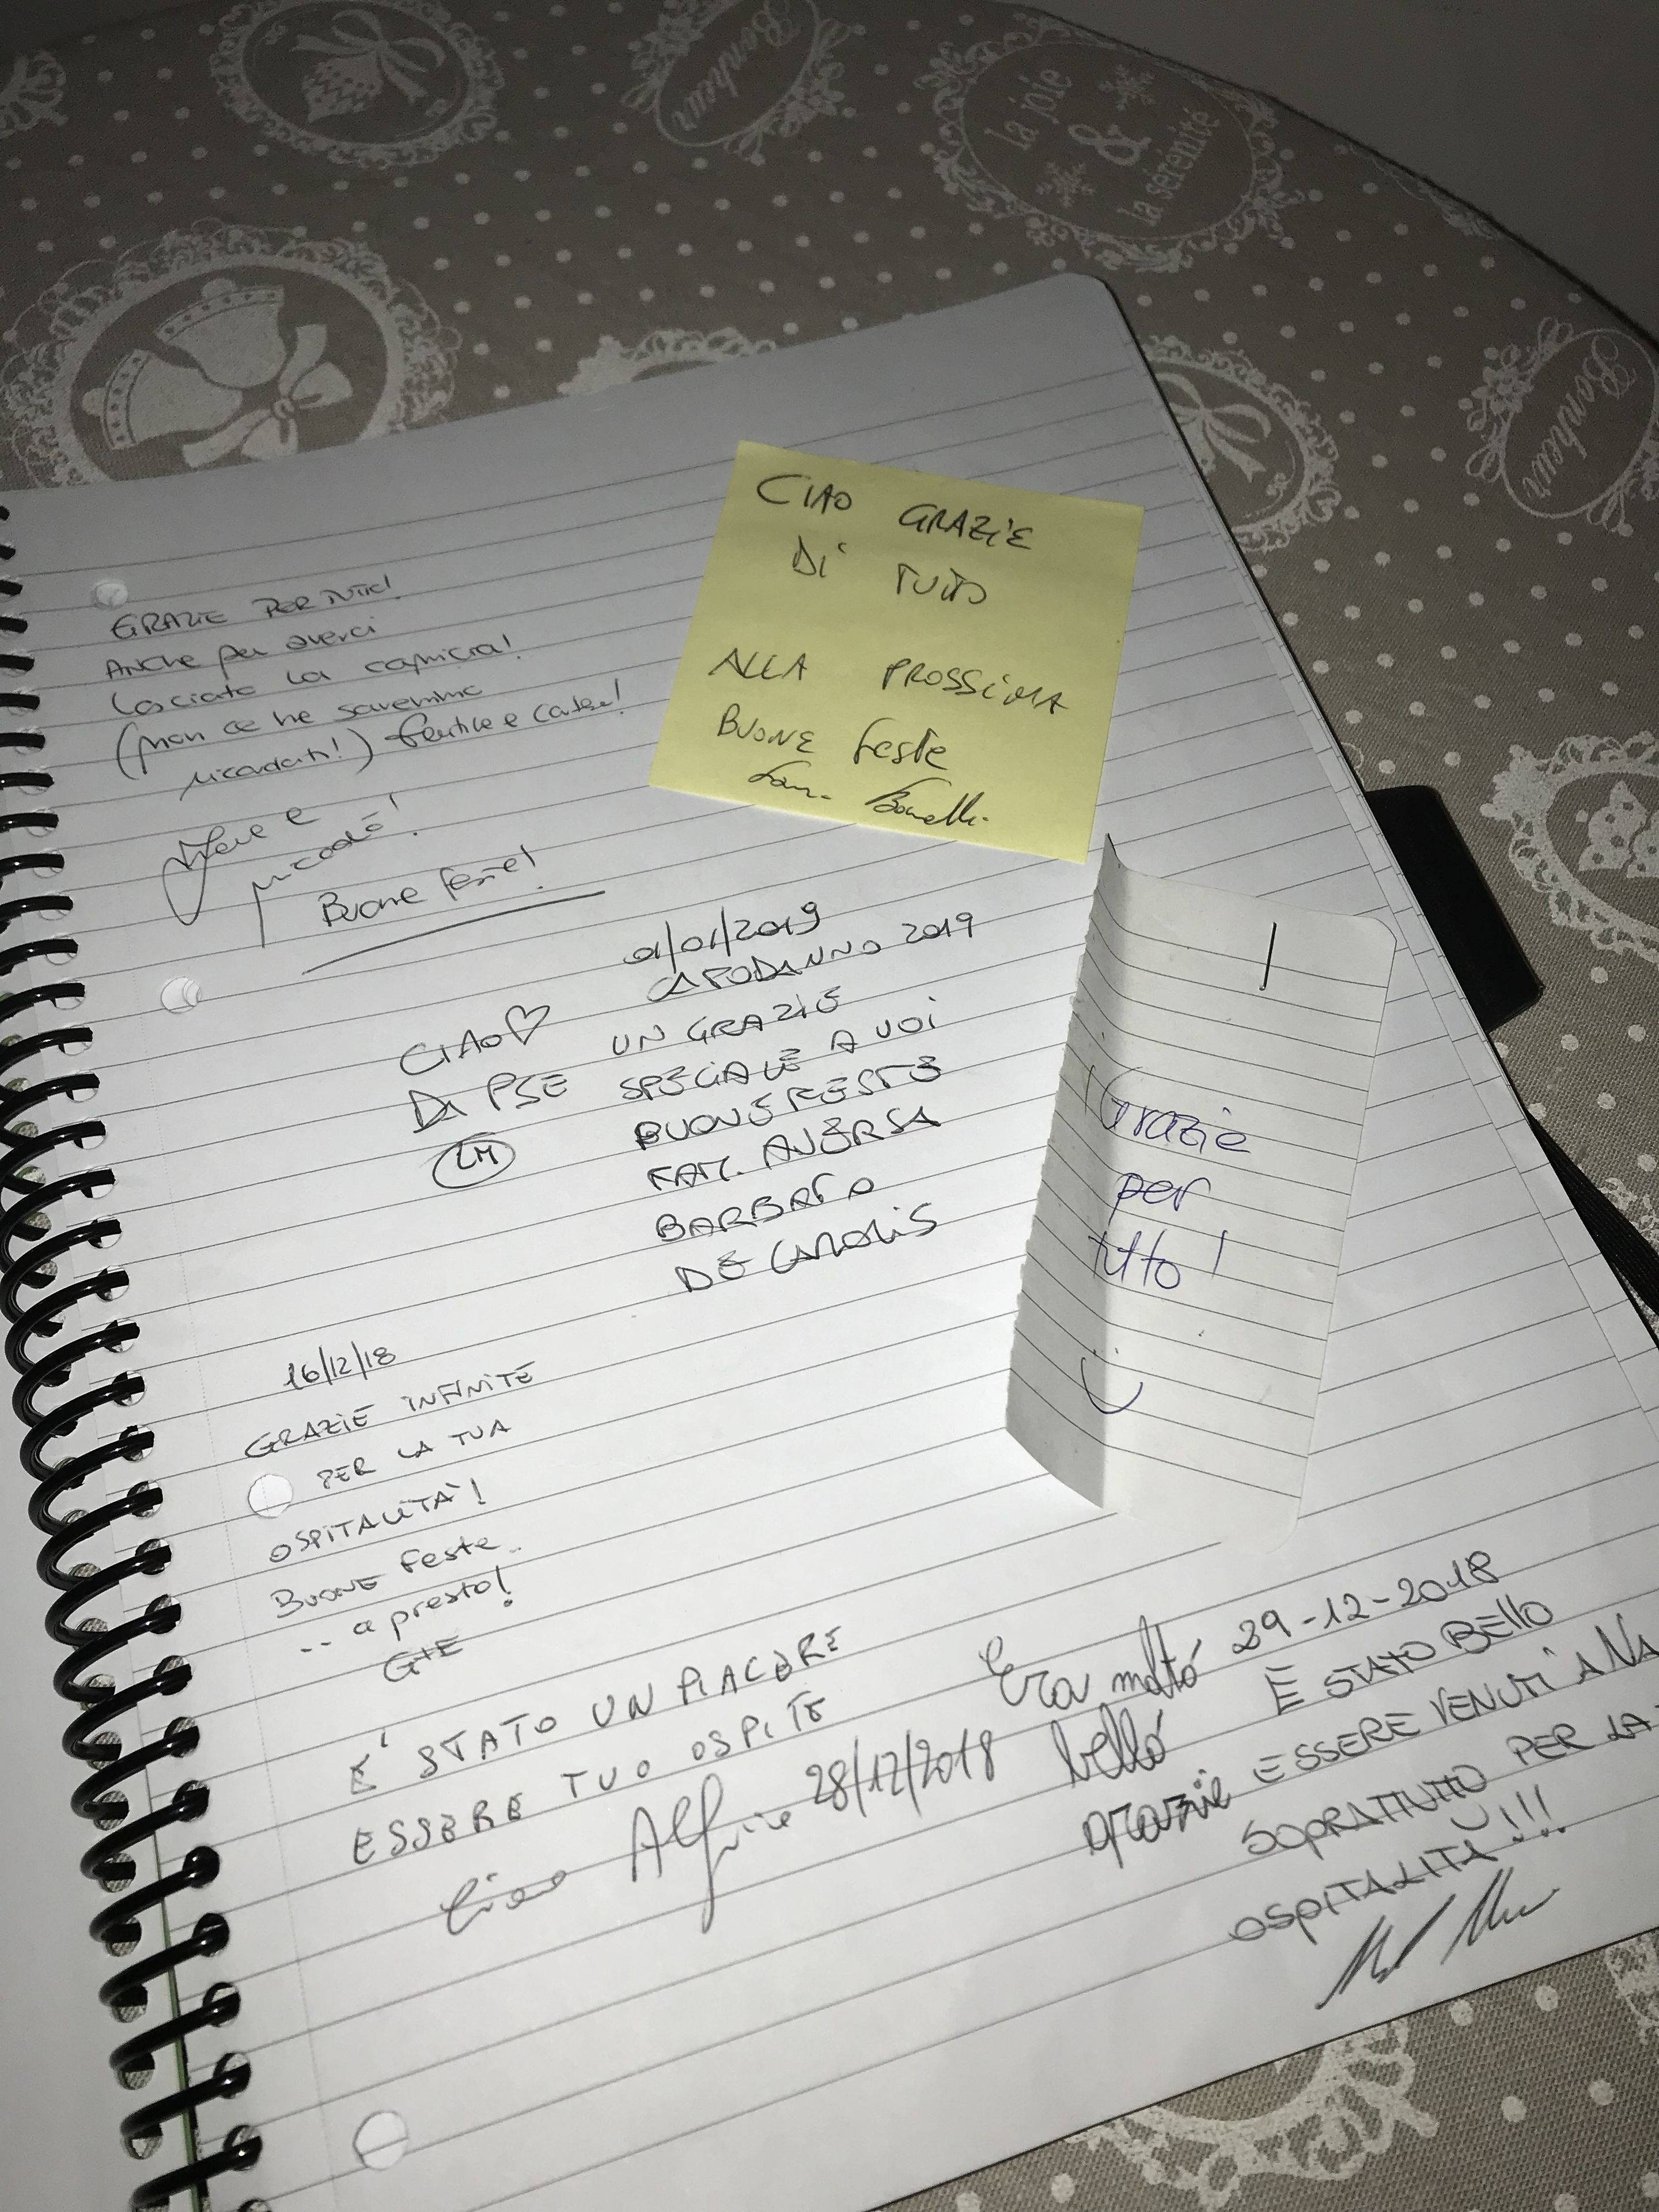 Bonheur
la joie
&
la sérénité
Bonheur
CIAO GRAZIE
DI TUTTO
ALLA PROSSIMA
BUONE feste
GRAZIE PER TUTTO!
ANche per averci
lasciato la camicia!
(non ce ne saremmo
ricordati!)
Buone feste!
01/01/2019
CAPODANNO 2019
CIAO♡
DA PSE
LM
UN GRAZIE
SPECIALE A VOI
BUONE FESTE
FAM. AVERSA
BARBATO
DE CAROLIS
Grazie
per
tutto!
16/12/18
GRAZIE INFINITE
PER LA TUA
OSPITALITÀ!
BUONE Feste..
-- a presto!
G+E
E' STATO UN PIACERE
ESSERE TUO OSPITE
Ciao 28/12/2018
Era moltó
belló
grazie
29-12-2018
E STATO BEllO
ESSERE VENUTI A NA
SOPRATTUTTO PER LA
OSPITALITÀ!!!